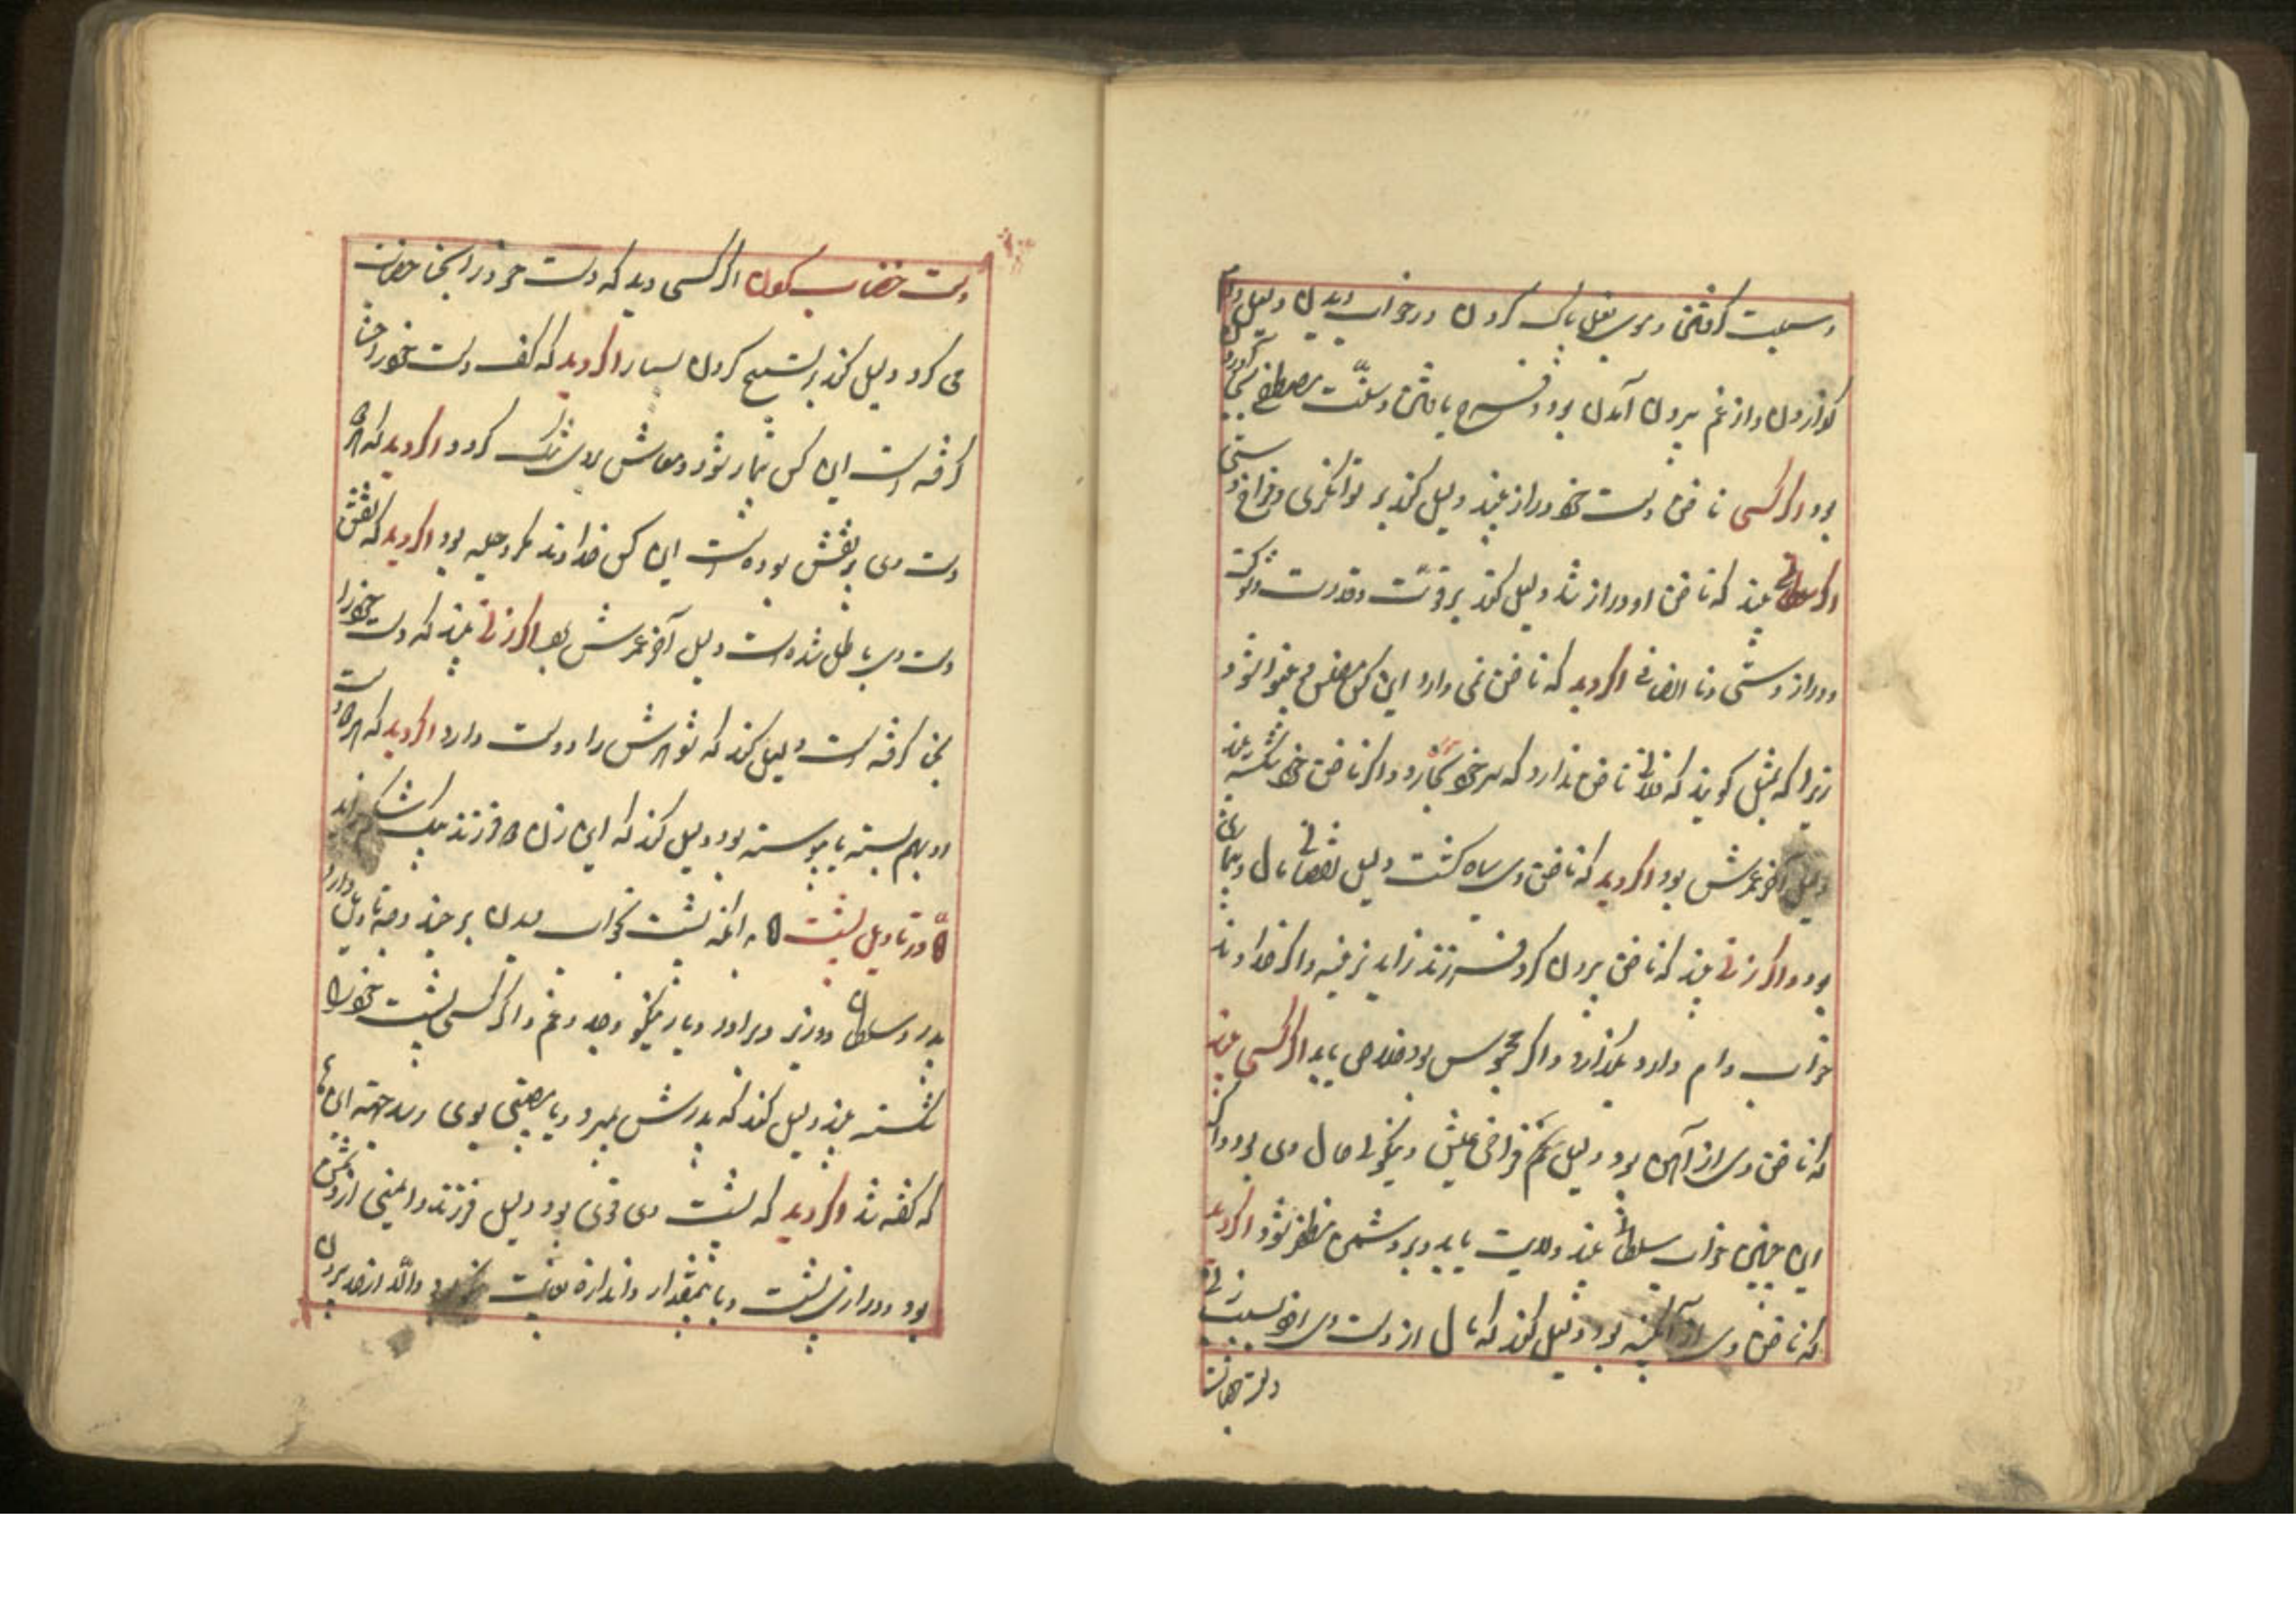 و سبلت گرفتن و موی بغل پاک کردن در خواب دیدن دلیل وام
گزاردن و از غم بیرون آمدن بود و فرح یافتن و سنّت مصطفی بجا آورد
بود اگر کسی ناخن دست خود دراز بیند دلیل کند بر توانگری و فراخ دستی
اگر سلطانی بیند که ناخن او دراز شد دلیل کند بر قوّت و قدرت و شوکت
و دراز دستی و ناانصافی اگر دید که ناخن نمی دارد این کس مفلس و بینوا شود
زیرا که بمثل گویند که فلانی ناخن ندارد که سر خود بخارد و اگر ناخن خود شکسته بیند
دلیل آخر عمرش بود اگر دید که ناخن وی سیاه گشت دلیل نقصانی مال و بیماری
بود و اگر زنی بیند که ناخن بیرون کرد فرزند زاید نرینه و اگر خداوند
خواب وام دارد بگذارد و اگر محبوس بود خلاصی یابد اگر کسی بیند
که ناخن وی از آهن بود دلیل فراخی عیش و نیکوئی حال وی بود و اگر
این چنین خواب سلطان بیند ولایت یابد و بر دشمن مظفر شود اگر دید
که ناخن وی از آبگینه بود دلیل کند که مال از دست وی بسبب زنی
دست خضاب کردن اگر کسی دید که دست خود را بحنا خضاب
می کرد دلیل کند بر تسبیح کردن بسیار اگر دید که کف دست خود را حنا
گرفته است این کس بیمار شود و معاش بروی تنگ گردد اگر دید که هر دو
دست وی پر نقش بوده است این کس خداوند مکر و حیله بود اگر دید که نقش
دست وی باطل شده است دلیل آخر عمرش بود اگر زنی بیند که دست خود را
بحنا گرفته است دلیل کند که شوهرش را دوست دارد اگر دید که هر دو دست
او بهم بسته یا پیوسته بود دلیل کند که این زن دو فرزند بیک شکم زاید
در تاویل پشت بدانکه پشت بخواب دیدن بر چند وجه تاویل دارد
پدر و سلطان و وزیر و برادر و یار نیکو و جد و غم و اگر کسی پشت خود را
شکسته بیند دلیل کند که پدرش بمیرد و یا مصیبتی بوی رسد این ها
که گفته شد اگر دید که پشت وی قوی بود دلیل فرزند و ایمنی از دشمن
بود و درازی پشت و با بمقدار و اندازه والّا از حد بیرون